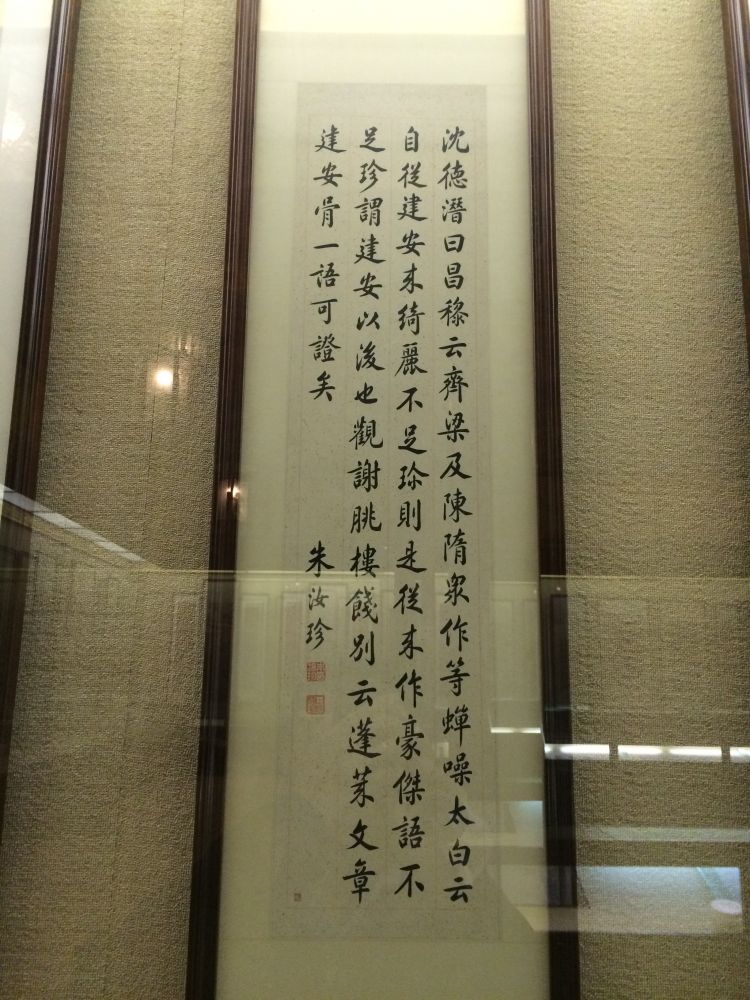 沈德潛曰昌黎云齊梁及陳隋衆作等蟬噪太白云
自從建安來綺麗不足珍則是從來作豪傑語不
足珍謂建安以後也觀謝朓樓餞別云蓬萊文章
建安骨一語可證矣
朱汝珍